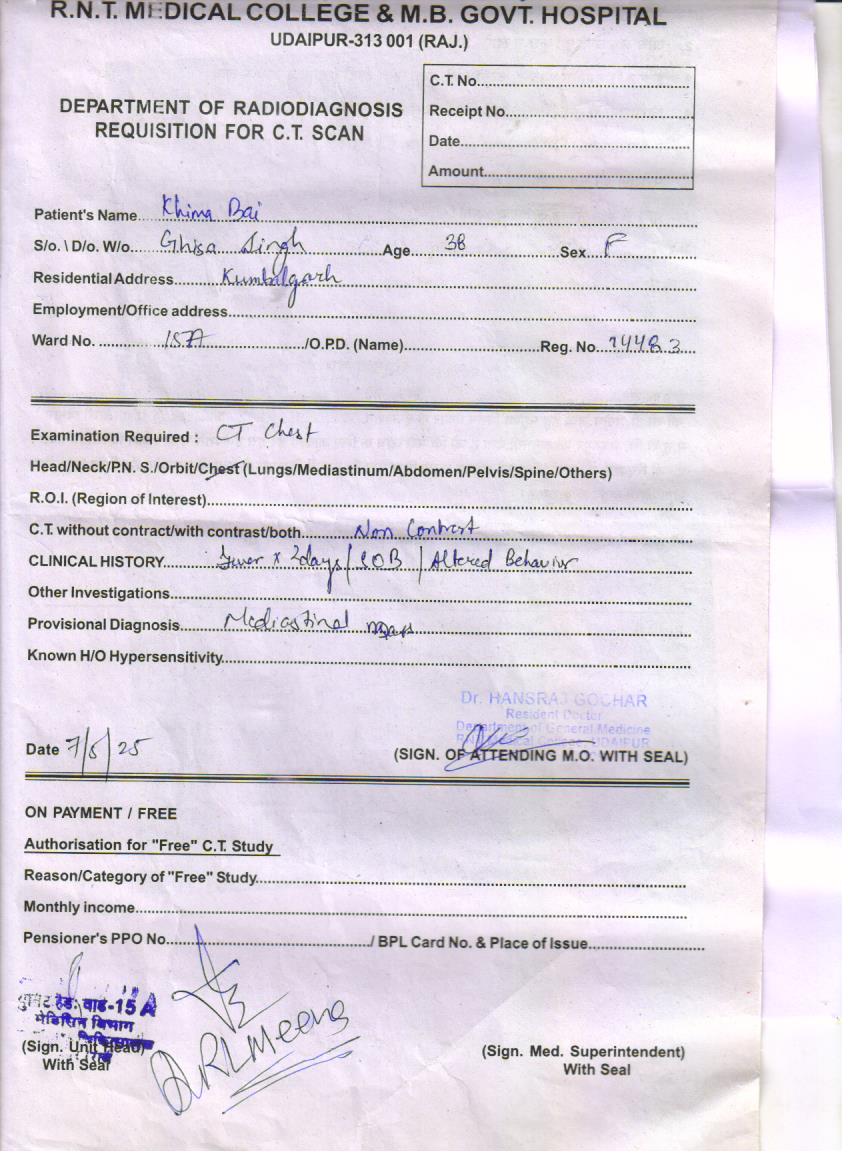 R.N.T. MEDICAL COLLEGE & M.B. GOVT. HOSPITAL
UDAIPUR-313 001 (RAJ.)
DEPARTMENT OF RADIODIAGNOSIS
REQUISITION FOR C.T. SCAN
C.T. No.
Receipt No.
Date
Amount
Patient's Name Khima Bai
S/o. \ D/o. W/o. Ghisa Singh Age 38 Sex F
Residential Address Kumbalgarh
Employment/Office address
Ward No. 15A /O.P.D. (Name) Reg. No. 14483
Examination Required : CT Chest
Head/Neck/P.N. S./Orbit/Chest (Lungs/Mediastinum/Abdomen/Pelvis/Spine/Others)
R.O.I. (Region of Interest)
C.T. without contract/with contrast/both Non Contrast
CLINICAL HISTORY Fever x 2days / SOB / Altered Behavior
Other Investigations
Provisional Diagnosis Mediastinal mass
Known H/O Hypersensitivity
Dr. HANSRAJ GOCHAR
Resident Doctor
Department of General Medicine
RNT Medical College, UDAIPUR
Date 7/5/25
(SIGN. OF ATTENDING M.O. WITH SEAL)
ON PAYMENT / FREE
Authorisation for "Free" C.T. Study
Reason/Category of "Free" Study
Monthly income
Pensioner's PPO No. / BPL Card No. & Place of Issue
युनिट हेड. वार्ड-15 A
मेडिसिन विभाग
RL Meena
(Sign. Unit Head)
With Seal
(Sign. Med. Superintendent)
With Seal